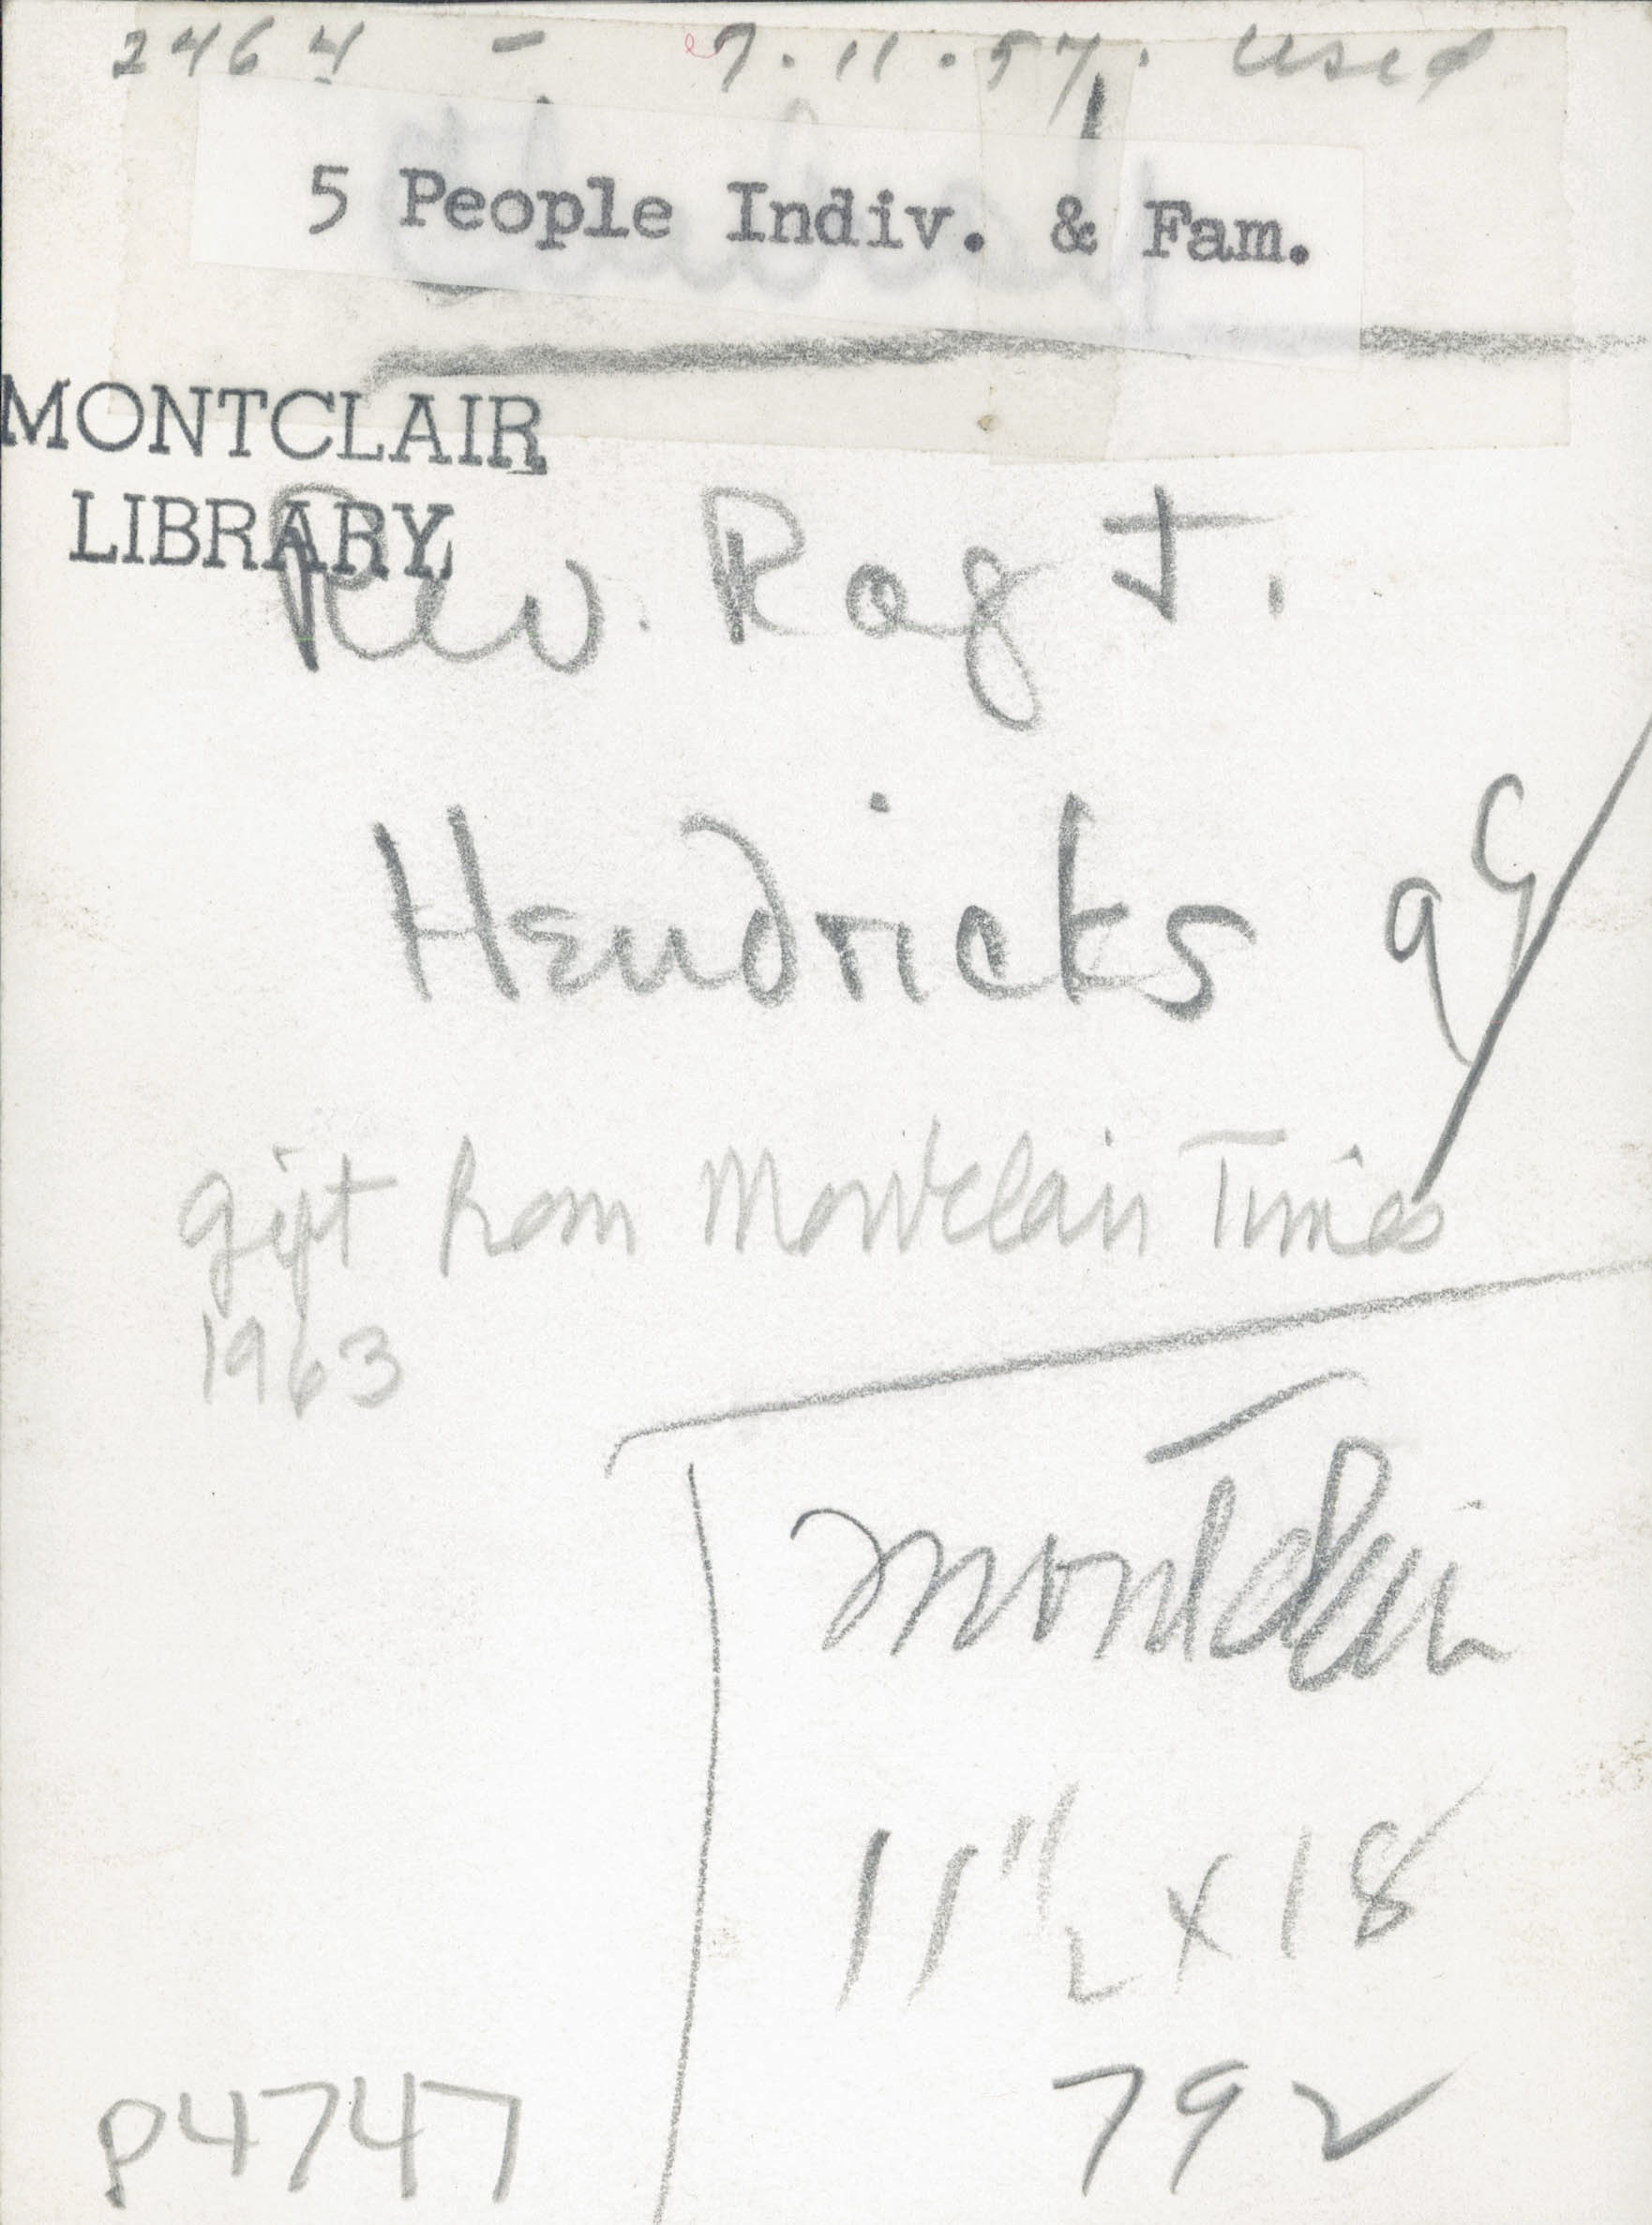 2464 - 7.11.57. used
5 People Indiv. & Fam.
MONTCLAIR
LIBRARY
Rev. Roy J.
Hendricks
gift from Montclair Times
1963
Montclair
11 1/2 x 18
792
P4747